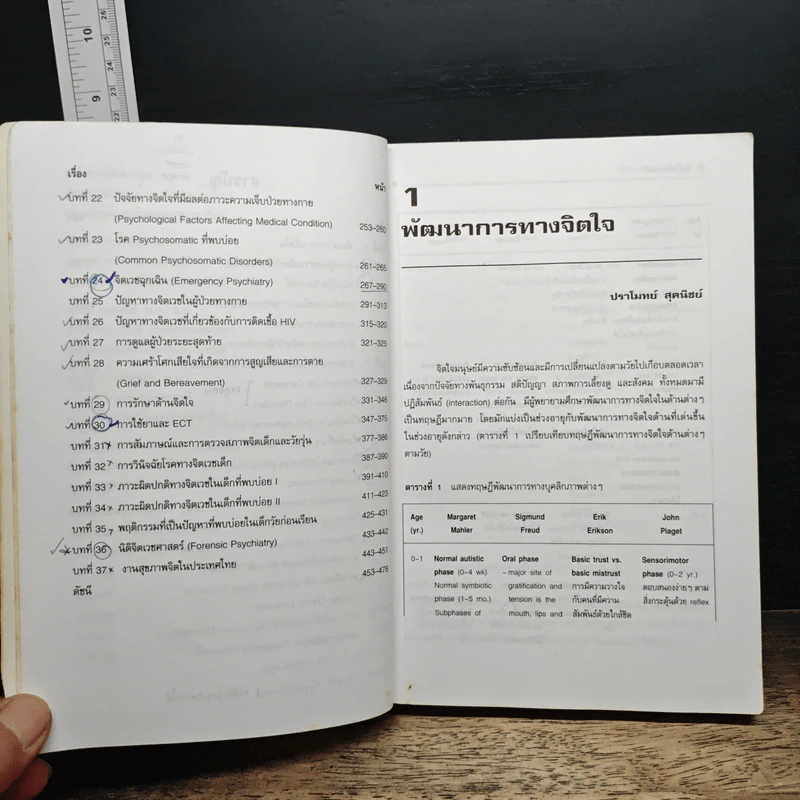 10
9
26
25
24
23
22
เรื่อง
หน้า
บทที่ 22 ปัจจัยทางจิตใจที่มีผลต่อภาวะความเจ็บป่วยทางกาย
(Psychological Factors Affecting Medical Condition) 253-260
บทที่ 23 โรค Psychosomatic ที่พบบ่อย
(Common Psychosomatic Disorders) 261-265
บทที่ 24 จิตเวชฉุกเฉิน (Emergency Psychiatry) 267-290
บทที่ 25 ปัญหาทางจิตเวชในผู้ป่วยทางกาย 291-313
บทที่ 26 ปัญหาทางจิตเวชที่เกี่ยวข้องกับการติดเชื้อ HIV 315-320
บทที่ 27 การดูแลผู้ป่วยระยะสุดท้าย 321-325
บทที่ 28 ความเศร้าโศกเสียใจที่เกิดจากการสูญเสียและการตาย
(Grief and Bereavement) 327-329
บทที่ 29 การรักษาด้านจิตใจ 331-346
บทที่ 30 การใช้ยาและ ECT 347-375
บทที่ 31 การสัมภาษณ์และการตรวจสภาพจิตเด็กและวัยรุ่น 377-386
บทที่ 32 การวินิจฉัยโรคทางจิตเวชเด็ก 387-390
บทที่ 33 ภาวะผิดปกติทางจิตเวชในเด็กที่พบบ่อย I 391-410
บทที่ 34 ภาวะผิดปกติทางจิตเวชในเด็กที่พบบ่อย II 411-423
บทที่ 35 พฤติกรรมที่เป็นปัญหาที่พบบ่อยในเด็กวัยก่อนเรียน 425-431
บทที่ 36 นิติจิตเวชศาสตร์ (Forensic Psychiatry) 433-442
บทที่ 37 งานสุขภาพจิตในประเทศไทย 443-451
ดัชนี 453-478
1
พัฒนาการทางจิตใจ
ปราโมทย์ สุคนิชย์
จิตใจมนุษย์มีความซับซ้อนและมีการเปลี่ยนแปลงตามวัยไปเกือบตลอดเวลา
เนื่องจากปัจจัยทางพันธุกรรม สติปัญญา สภาพการเลี้ยงดู และสังคม ทั้งหมดมามี
ปฏิสัมพันธ์ (interaction) ต่อกัน มีผู้พยายามศึกษาพัฒนาการทางจิตใจในด้านต่างๆ
เป็นทฤษฎีมากมาย โดยมักแบ่งเป็นช่วงอายุกับพัฒนาการทางจิตใจด้านที่เด่นขึ้น
ในช่วงอายุดังกล่าว (ตารางที่ 1 เปรียบเทียบทฤษฎีพัฒนาการทางจิตใจด้านต่างๆ
ตามวัย)
ตารางที่ 1 แสดงทฤษฎีพัฒนาการทางบุคลิกภาพต่างๆ
Age Margaret Sigmund Erik John
(yr.) Mahler Freud Erikson Piaget
0-1 Normal autistic Oral phase Basic trust vs. Sensorimotor
phase (0-4 wk) - major site of basic mistrust phase (0-2 yr.)
Normal symbiotic gratification and การมีความวางใจ ตอบสนองง่ายๆ ตาม
phase (1-5 mo.) tension is the กับคนที่มีความ สิ่งกระตุ้นด้วย reflex
Subphases of mouth, lips and สัมพันธ์ด้วยใกล้ชิด